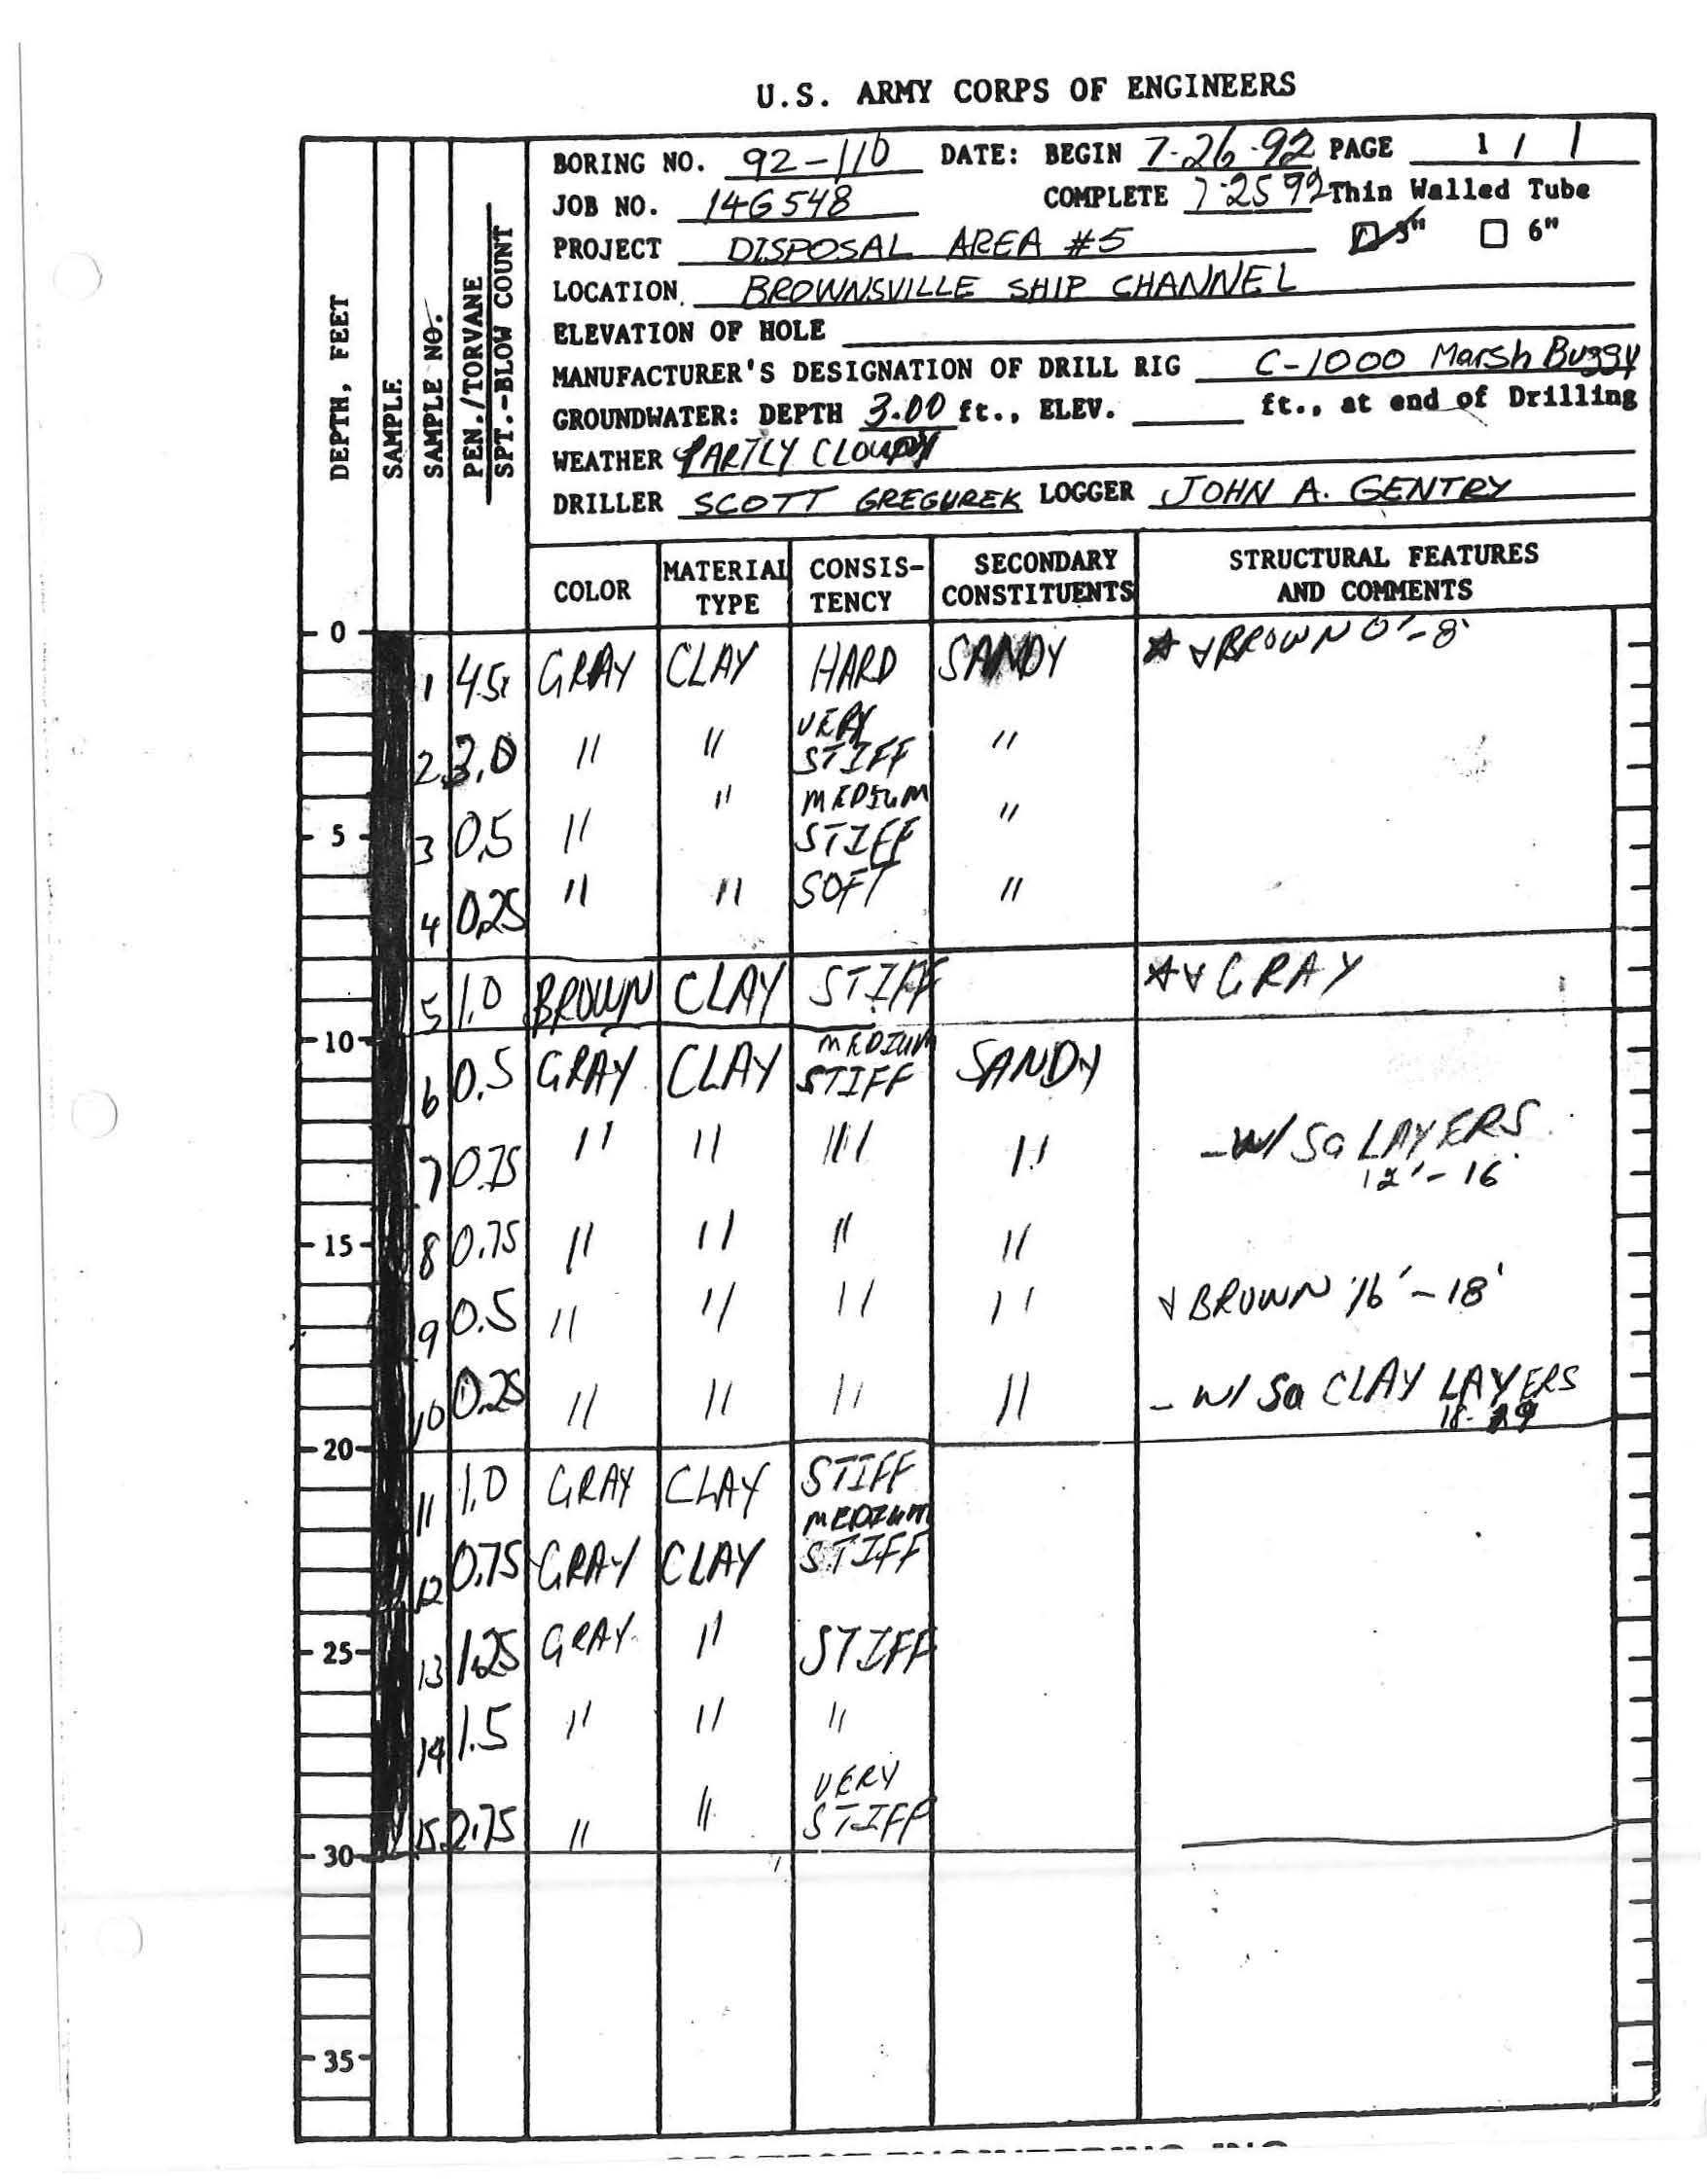 U.S. ARMY CORPS OF ENGINEERS
BORING NO. 92-110 DATE: BEGIN 7-26-92 PAGE 1 / 1
JOB NO. 14G548 COMPLETE 7-25 92 Thin Walled Tube
PROJECT DISPOSAL AREA #5 3" 6"
LOCATION BROWNSVILLE SHIP CHANNEL
ELEVATION OF HOLE
MANUFACTURER'S DESIGNATION OF DRILL RIG C-1000 Marsh Buggy
GROUNDWATER: DEPTH 3.00 ft., ELEV. ft., at end of Drilling
WEATHER PARTLY CLOUDY
DRILLER SCOTT GREGUREK LOGGER JOHN A. GENTRY
DEPTH, FEET
SAMPLE
SAMPLE NO.
PEN./TORVANE
SPT.-BLOW COUNT
COLOR MATERIAL TYPE CONSIS-TENCY SECONDARY CONSTITUENTS STRUCTURAL FEATURES AND COMMENTS
0
1 4.5+ GRAY CLAY HARD SANDY BROWN 0'-8'
2 3.0 " " VERY STIFF "
3 0.5 " " MEDIUM STIFF "
5
4 0.25 " " SOFT "
5 1.0 BROWN CLAY STIFF GRAY
10
6 0.5 GRAY CLAY MEDIUM STIFF SANDY
7 0.75 " " "" " -W/ Sa LAYERS 12'-16'
15
8 0.75 " " " "
9 0.5 " " " " BROWN 16'-18'
10 0.25 " " " " - W/ Sa CLAY LAYERS
20
11 1.0 GRAY CLAY STIFF
12 0.75 GRAY CLAY MEDIUM STIFF
25
13 1.25 GRAY " STIFF
14 1.5 " " "
15 2.75 " " VERY STIFF
30
35